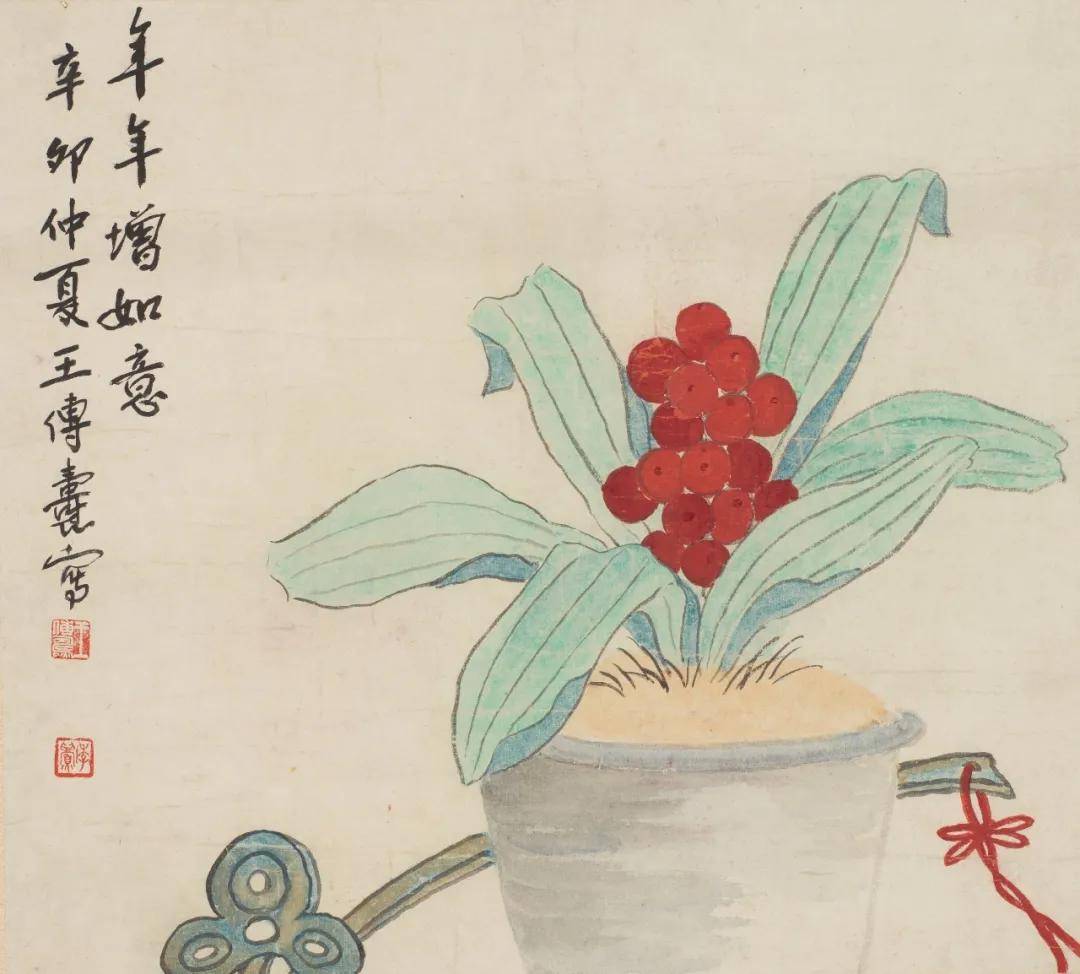 年年增如意
辛卯仲夏王傳燾寫